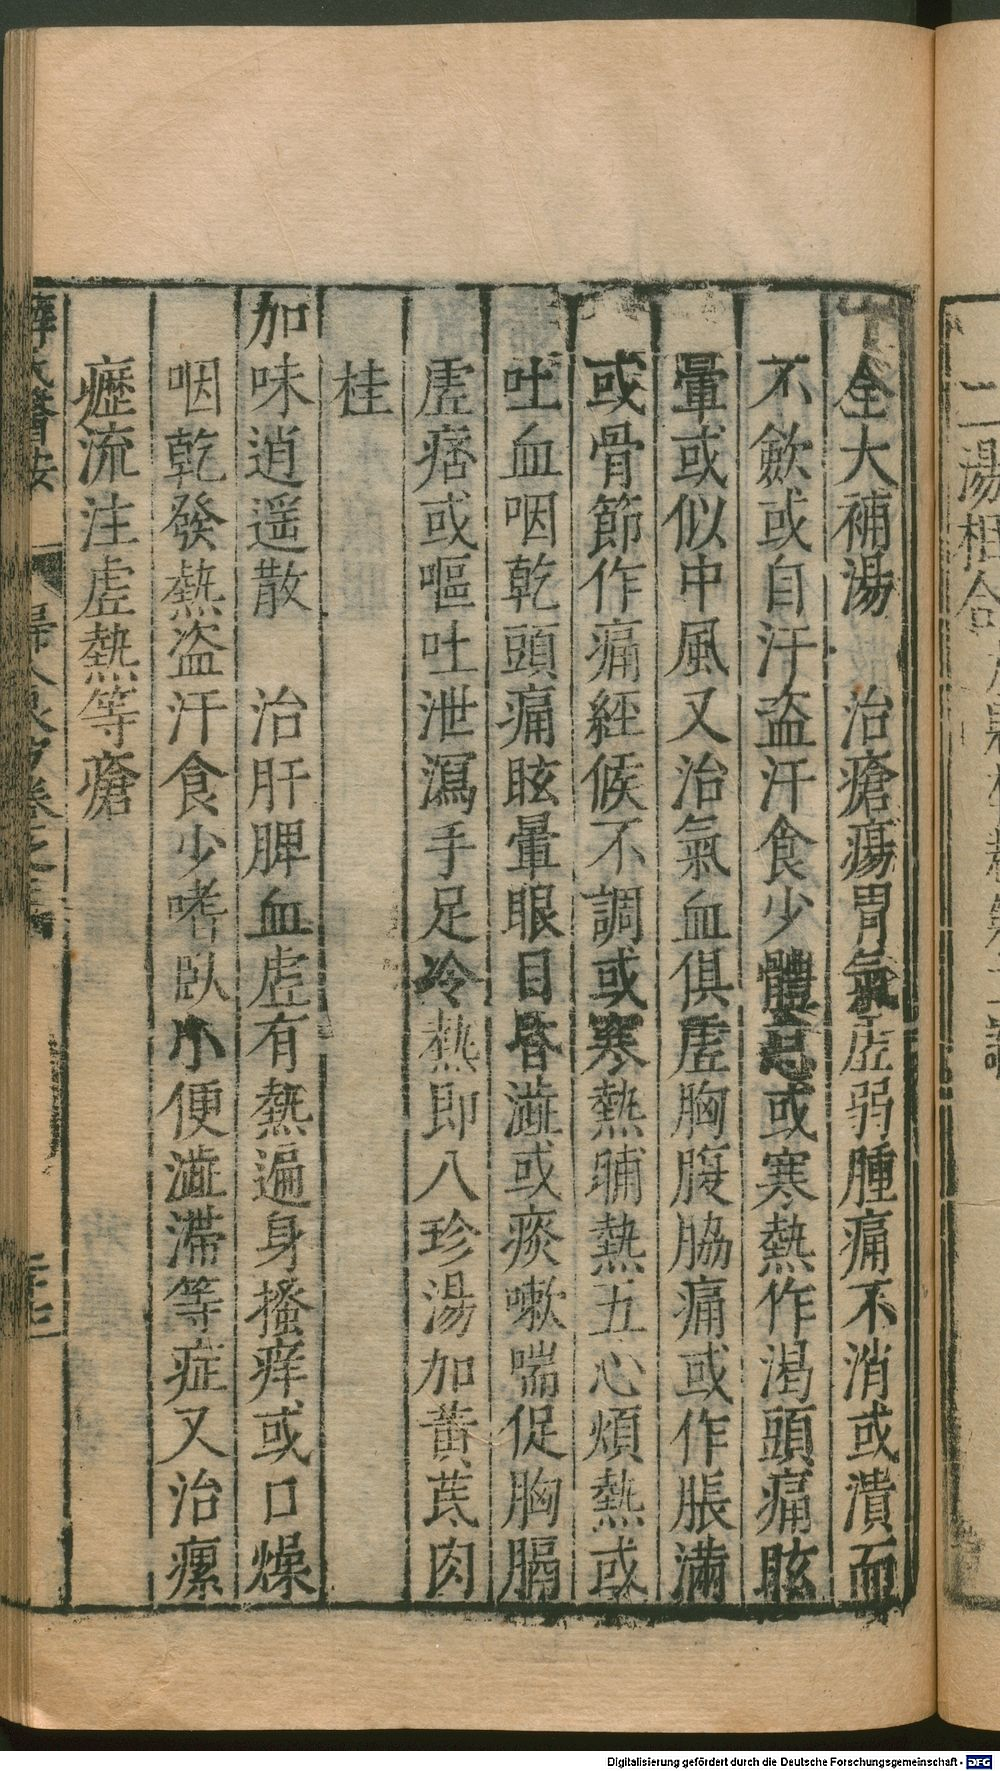 十全大補湯　治瘡瘍胃氣虛弱腫痛不消或潰而
不歛或自汗盜汗食少體倦或寒熱作渴頭痛眩
暈或似中風又治氣血俱虛胸腹脇痛或作脹滿
或骨節作痛經候不調或寒熱晡熱五心煩熱或
吐血咽乾頭痛眩暈眼目昏澁或痰嗽喘促胸膈
虛痞或嘔吐泄瀉手足冷熱即八珍湯加黃芪肉
桂
加味逍遥散　治肝脾血虛有熱遍身搔痒或口燥
咽乾發熱盗汗食少嗜臥小便澁滯等症又治瘰
癧流注虛熱等瘡
薛氏醫按
婦人良方卷之
Digitalisierung gefördert durch die Deutsche Forschungsgemeinschaft - DFG